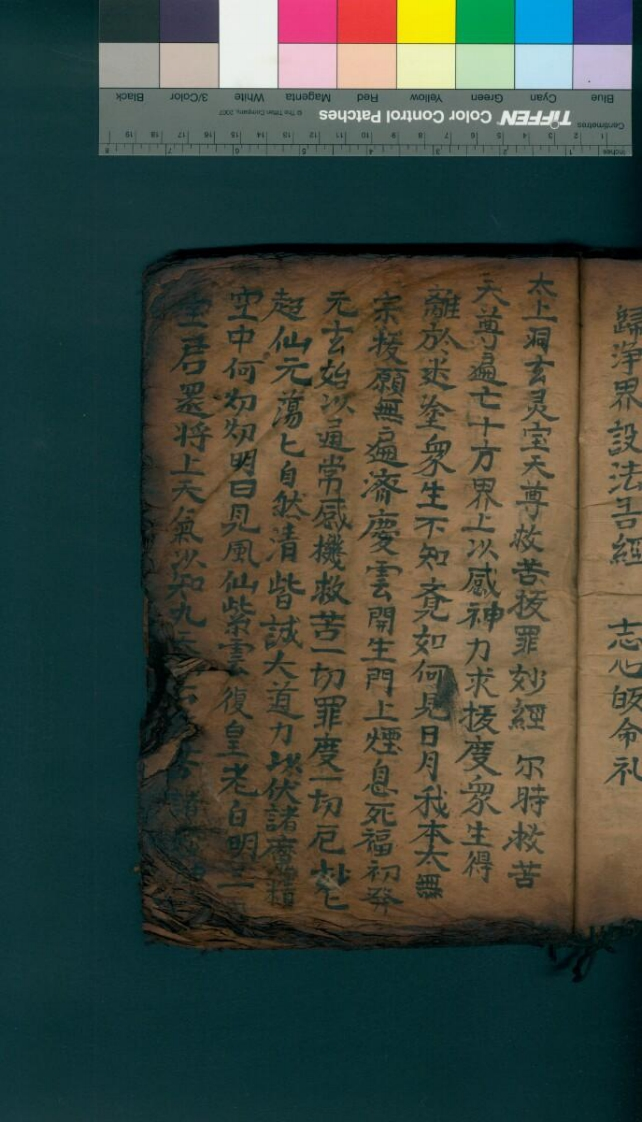 歸淨界設法吾經 志心皈命礼
太上洞玄灵宝天尊救苦拔罪妙經 尔時救苦
天尊遍亡十方界上以感神力求拔度衆生得
離於迷塗衆生不知竟如何見日月我本太無
宗拔願無遍齊慶雲開生門上煙息死福初發
元玄始以通常感機救苦一切罪度一切厄妙匕
超仙元蕩匕自然清皆誠大道力以伏諸魔精
空中何灼灼明曰見風仙紫雲復皇老白明三
君還将上天氣以知九天
TIFFEN Color Control Patches
© The Tiffen Company, 2007
Blue Cyan Green Yellow Red Magenta White 3/Color Black
Centimetres
Inches